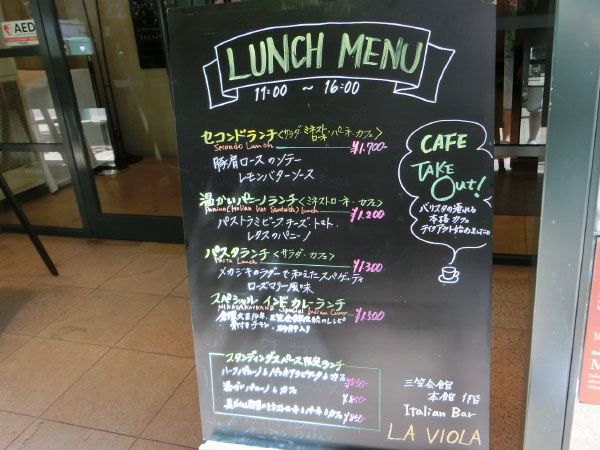 AED
LUNCH MENU
11:00 ~ 16:00
セコンドランチ <サラダ・ミネストローネ・パーネ・カフェ>
Secondo Lunch
¥1.700-
豚肩ロースのソテー
レモンバターソース
温かいパニーノランチ <ミネストローネ・カフェ>
Panino (Italian Hot Sandwich) Lunch
¥1.200
パストラミビーフ・チーズ・トマト・
レタスのパニーノ
パスタランチ <サラダ・カフェ>
Pasta Lunch
¥1.300
メカジキのラグーで和えたスパゲッティ
ローズマリー風味
スペシャル インドカレーランチ
MIKASAKAIKAN Special Indian Curry
¥1.500
スタンディングスペース限定ランチ
¥850-
温かいパニーノ & カフェ
¥850-
¥850-
CAFE
TAKE
Out!
バリスタの淹れる
本格カフェ
テイクアウト始めました
三笠会館
本館 1階
Italian Bar
LA VIOLA